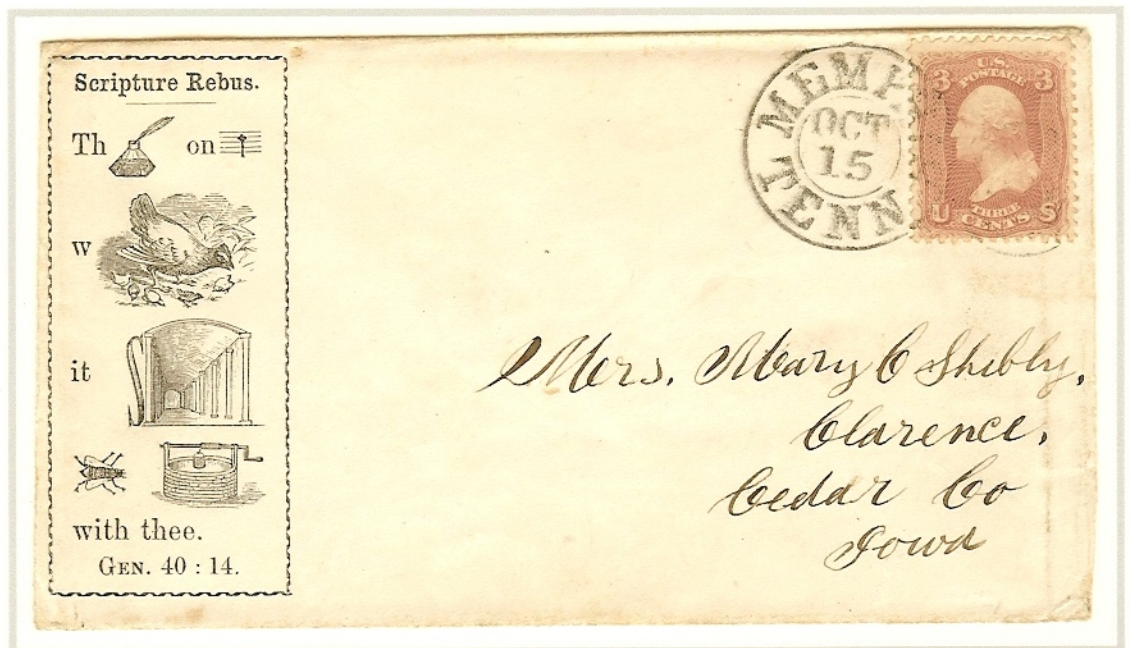 Scripture Rebus.
Th on
w
it
with thee.
GEN. 40 : 14.
MEMP
OCT
15
TENN
3 U.S. 3
POSTAGE
U THREE S
CENTS
Mrs. Mary C Shibly,
Clarence,
Cedar Co
Iowa